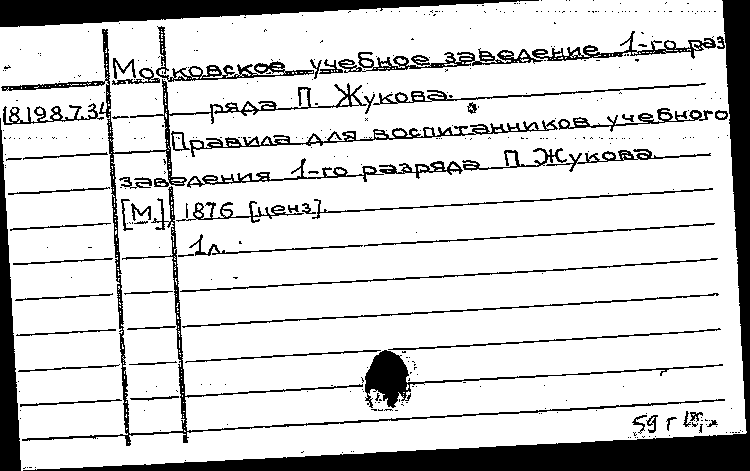 Московское учебное заведение 1-го раз
18.198.7.34
ряда П. Жукова.
Правила для воспитанников учебного
заведения 1-го разряда П. Жукова.
[М.], 1876 [ценз].
1л.
59 г